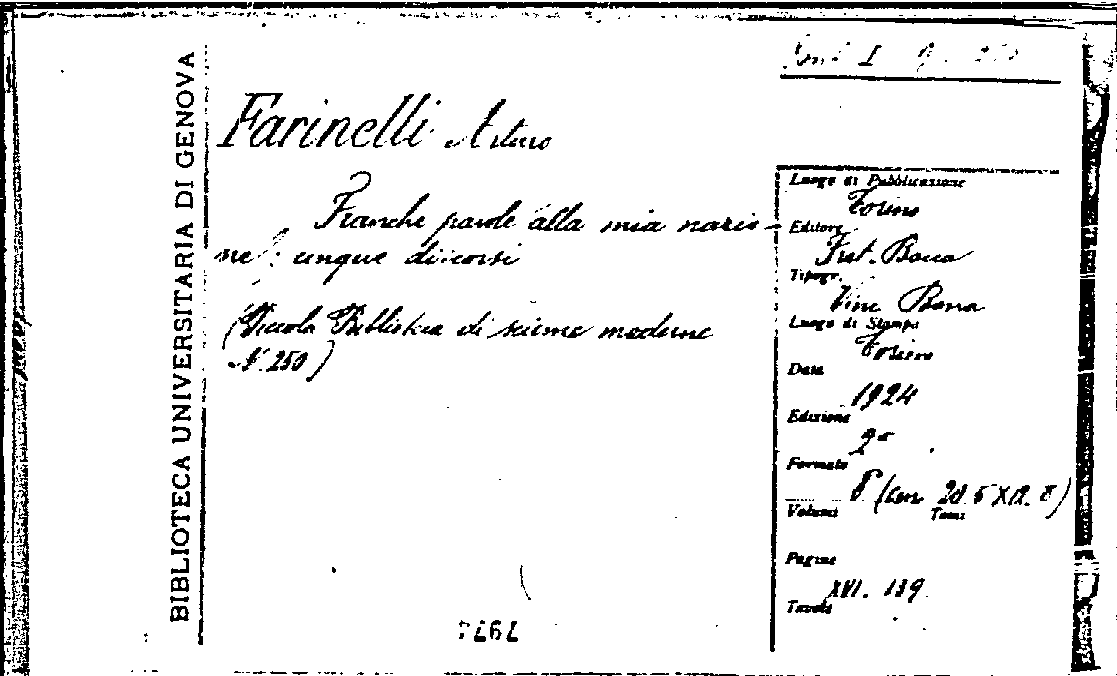 BIBLIOTECA UNIVERSITARIA DI GENOVA
Farinelli Arturo
Franche parole alla mia nazio-
ne: cinque discorsi
(Piccola Biblioteca di scienze moderne
N. 250)
Luogo di Pubblicazione
Torino
Editore
Frat. Bocca
Tipogr.
Vinc. Bona
Luogo di Stampa
Torino
Data
1924
Edizione
2ª
Formato
8° (cm 20.5 X
Volumi Tomi
Pagine
XVI. 139
Tavole